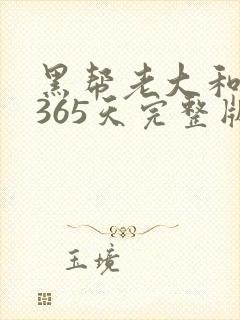 黑帮老大和
365天完整版
玉境